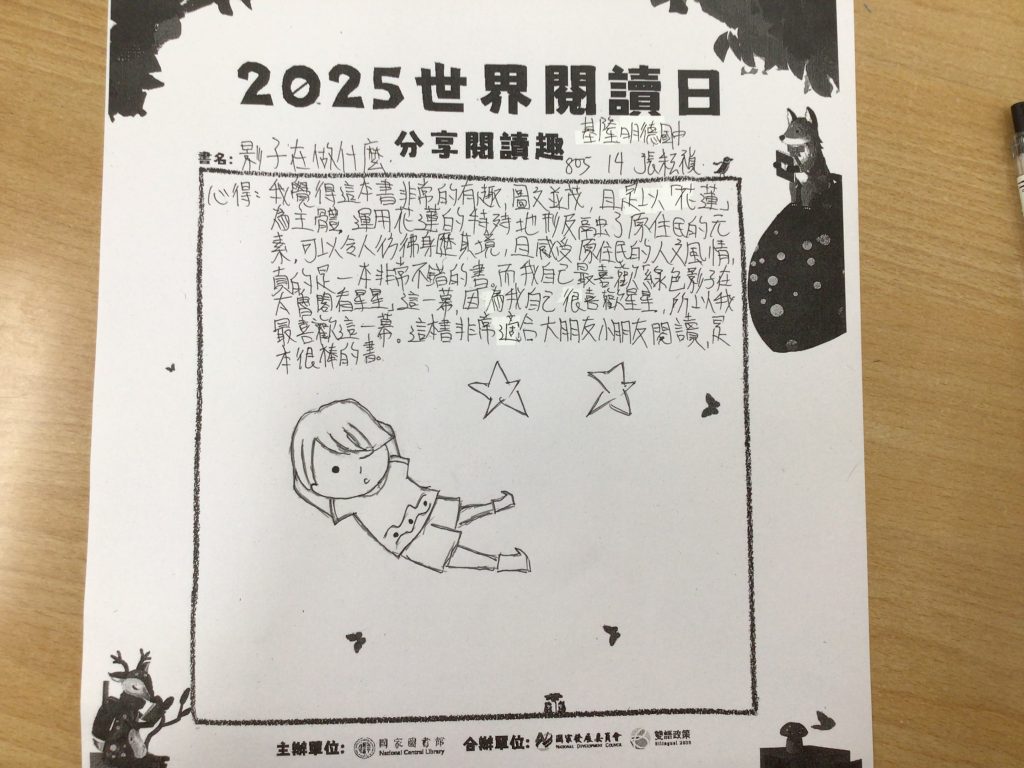 2025世界閱讀日
分享閱讀趣
基隆明德國中
書名: 影子在做什麼
805 14 張
心得: 我覺得這本書非常的有趣,圖文並茂,且是以「花蓮」
為主體,運用花蓮的特殊地形及畫出了原住民的元
素,可以令人彷彿身歷其境,且感受原住民的人文風情,
真的是一本非常不錯的書,而我自己最喜歡綠色影子在
大會閣看星星,這一幕,因為我自己很喜歡星星,所以我
最喜歡這一幕。這本書非常適合大朋友小朋友閱讀,是
本很棒的書。
主辦單位: 國家圖書館 National Central Library 合辦單位: 國家發展委員會 NATIONAL DEVELOPMENT COUNCIL 雙語政策 Bilingual 2030